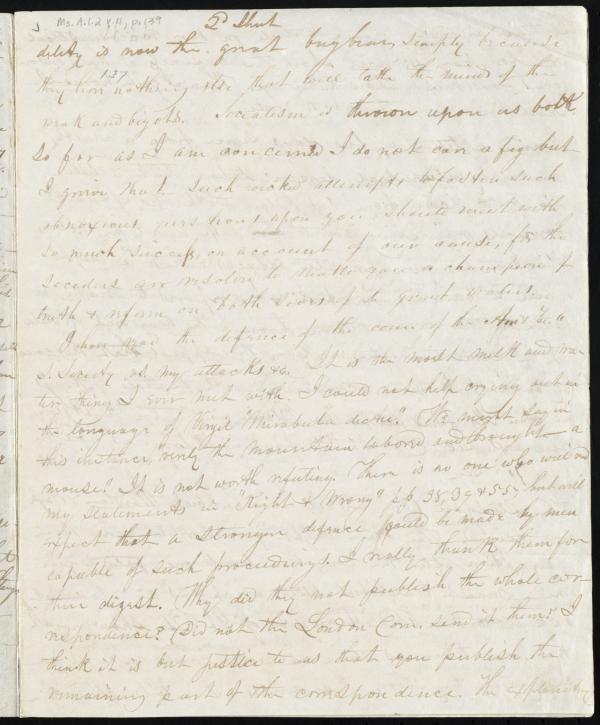 Ms. A.1.2 v.11, p.139
2 Sheet
delity is now the great bugbear, simply because
137
they have nothing else that will take the minds of the
weak and bigots. Socialism is thrown upon us both
So far as I am concerned I do not care a fig but
I grieve that such wicked attempts to fasten such
obnoxious persons upon you should meet with
so much success, on account of our cause, for the
Seceders are resolved to that you a champion of
truth & reform on both sides of the great waters.
I have read the defence of the com of the Am &
S. Society vs. my attacks &c. It is the most milk and wa-
ter thing I ever met with. I could not help crying out in
the language of Virgil "Mirabula dictu". We might say in
this instance, "verily the mountain labored and brought a
mouse." It is not worth refuting. There is no one who will read
my statements in "Right & Wrong" pp. 38, 39 & 55, but will
expect that a stronger defence could be made by men
capable of such proceedings. I really thank them for
their digest. Why did they not publish the whole cor-
respondence? Did not the London Com. send it them? I
think it is but justice to us that you publish the
remaining part of the correspondence. The